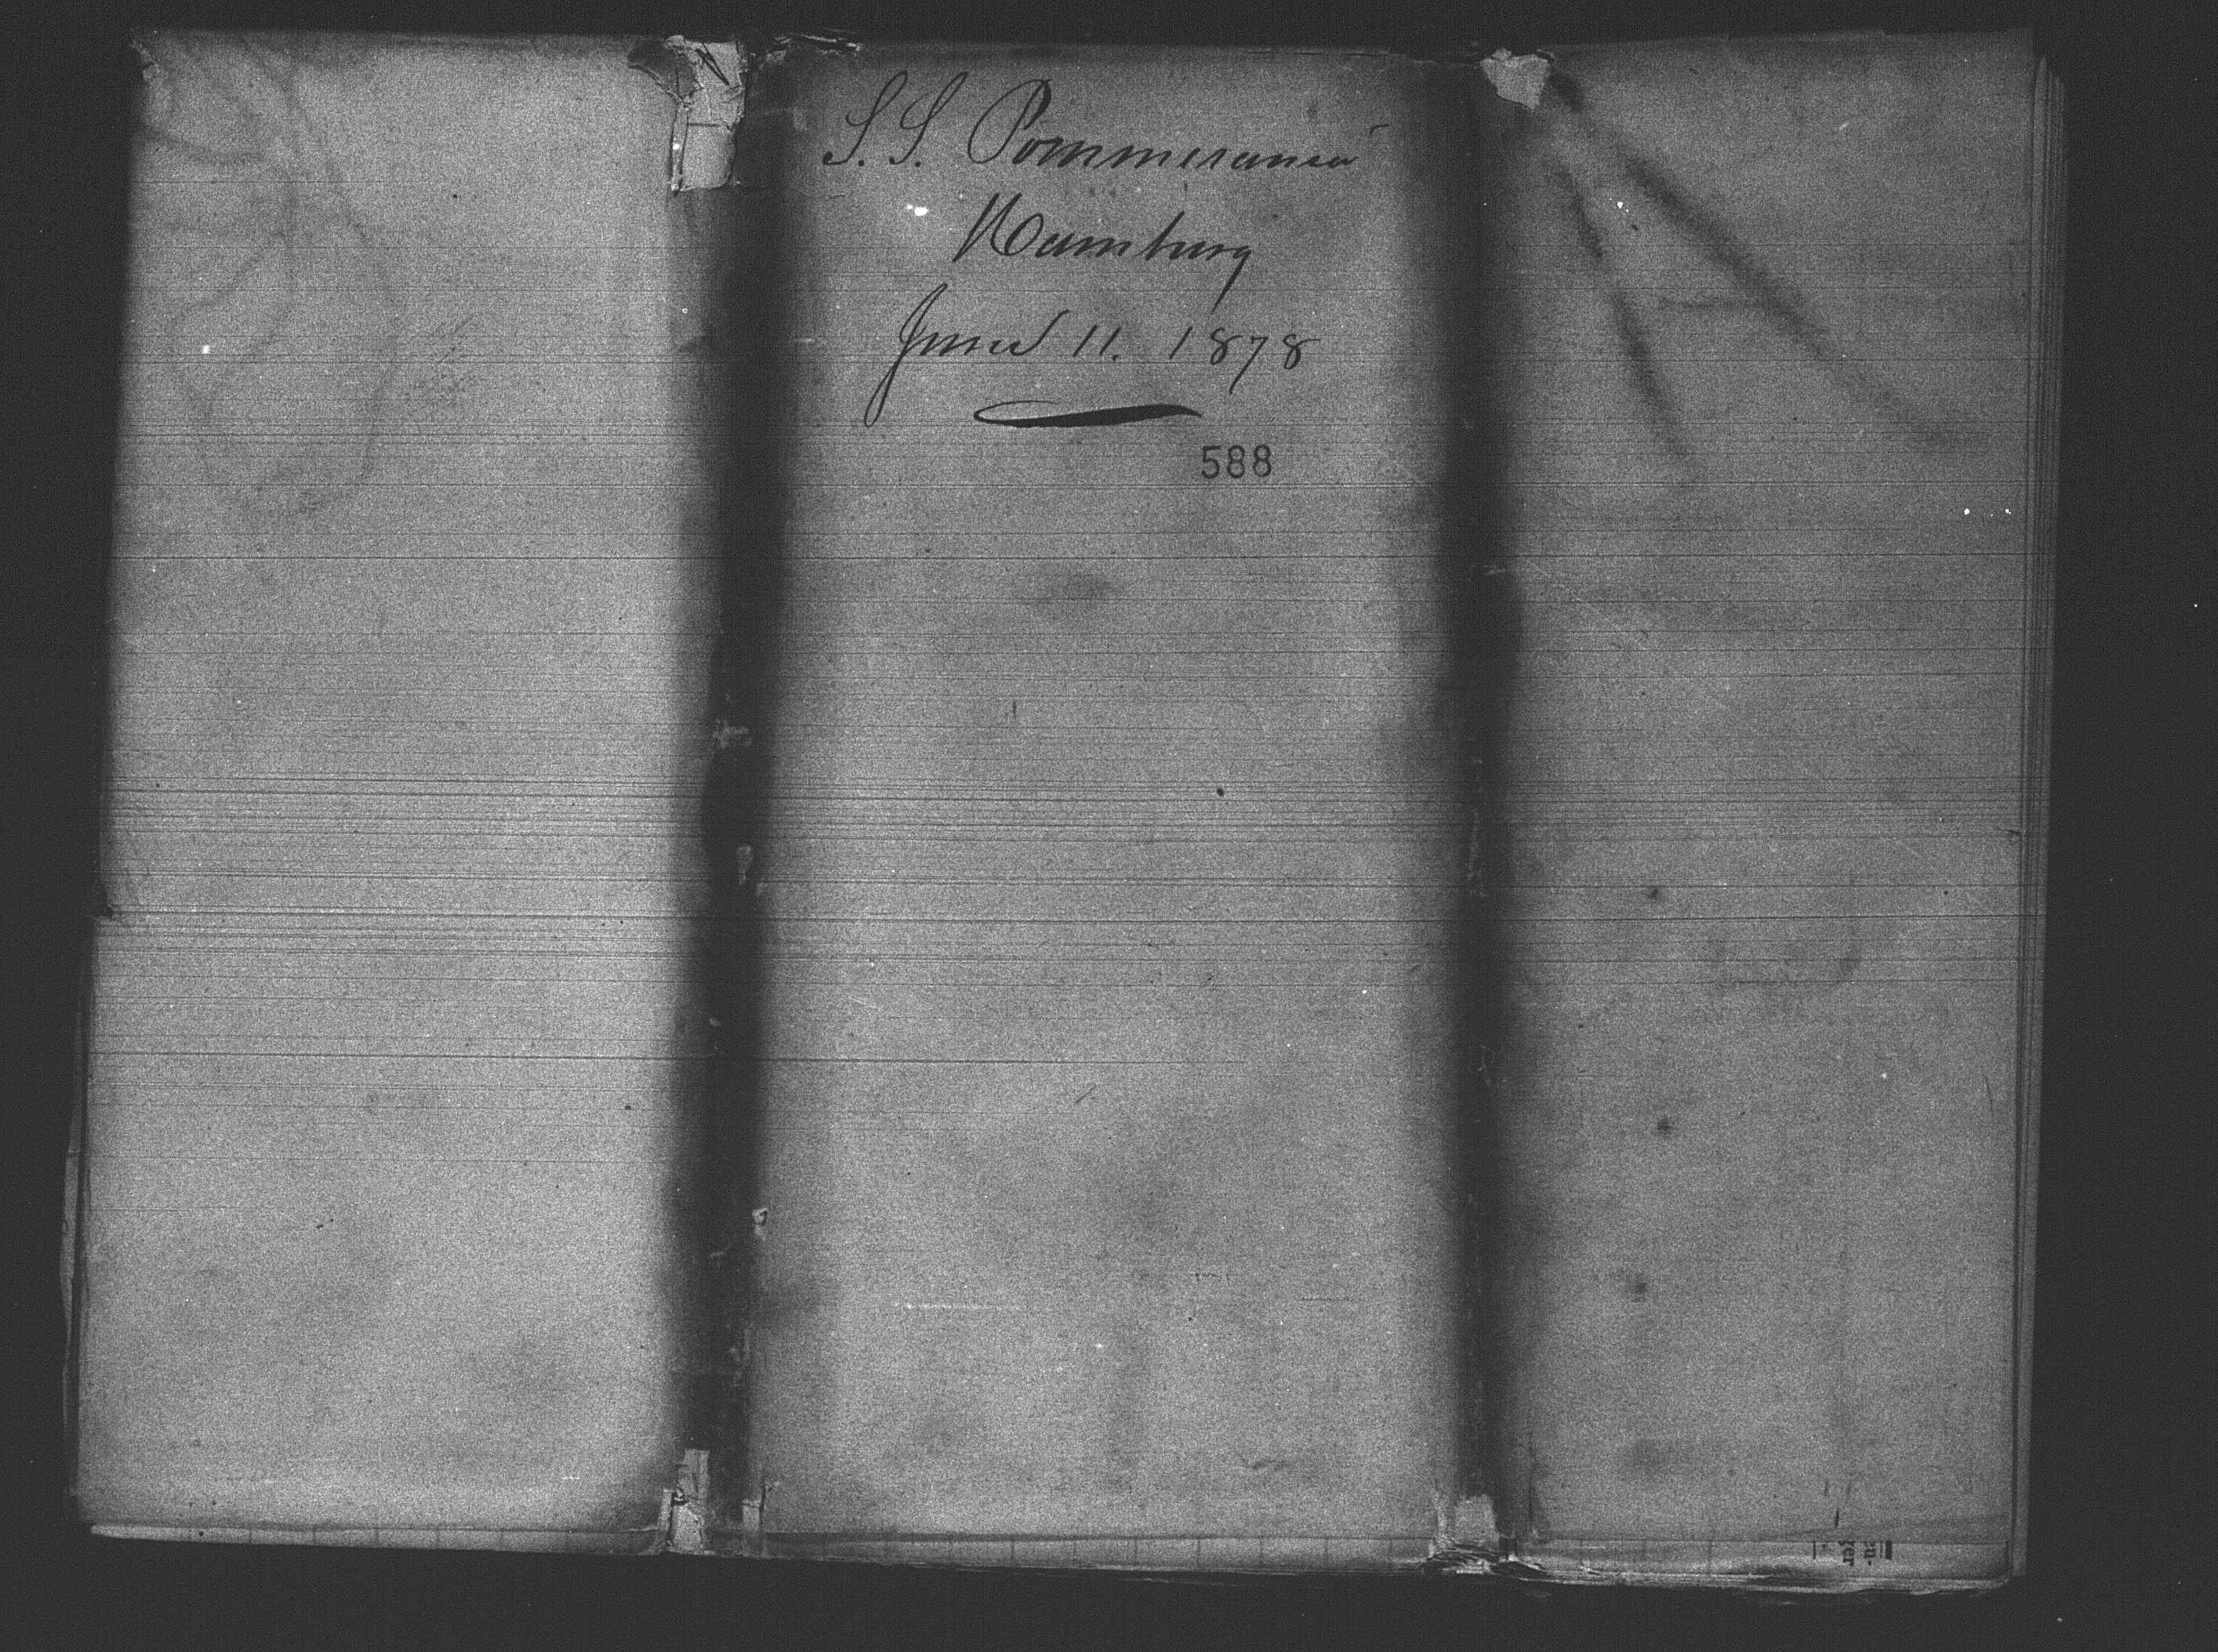 S.S. Pommerania
Hamburg
June 11. 1878
588